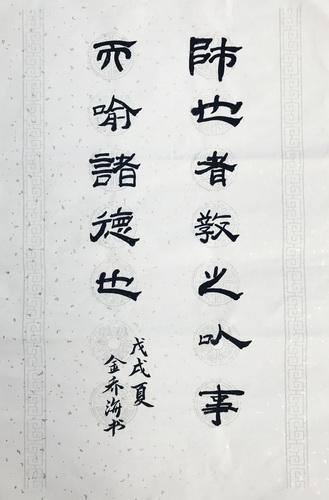 師也者教之以事
而喻諸德也
戊戌夏
金乔海书